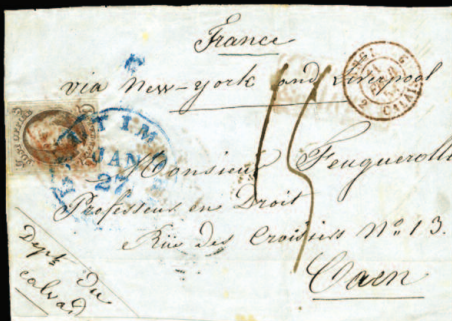 France
via New-york and Liverpool
CALAIS
JAN
27
15
Monsieur Feuguerolle
Professeur en Droit
Rüe des Croisiers No 13.
Caen
Dept. du
Calvad